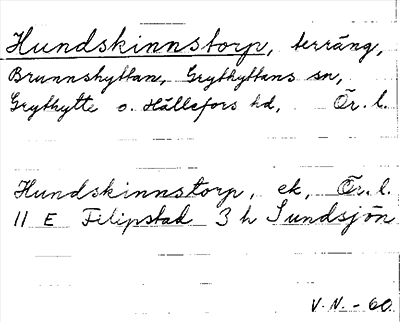 Hundskinnstorp, terräng,
Brunnshyttan, Grythyttans sn,
Grythytte o. Hällefors hd, Ör. l.
Hundskinnstorp, ek, Ör. l.
11 E Filipstad 3 h Sundsjön
V. N. - 60.